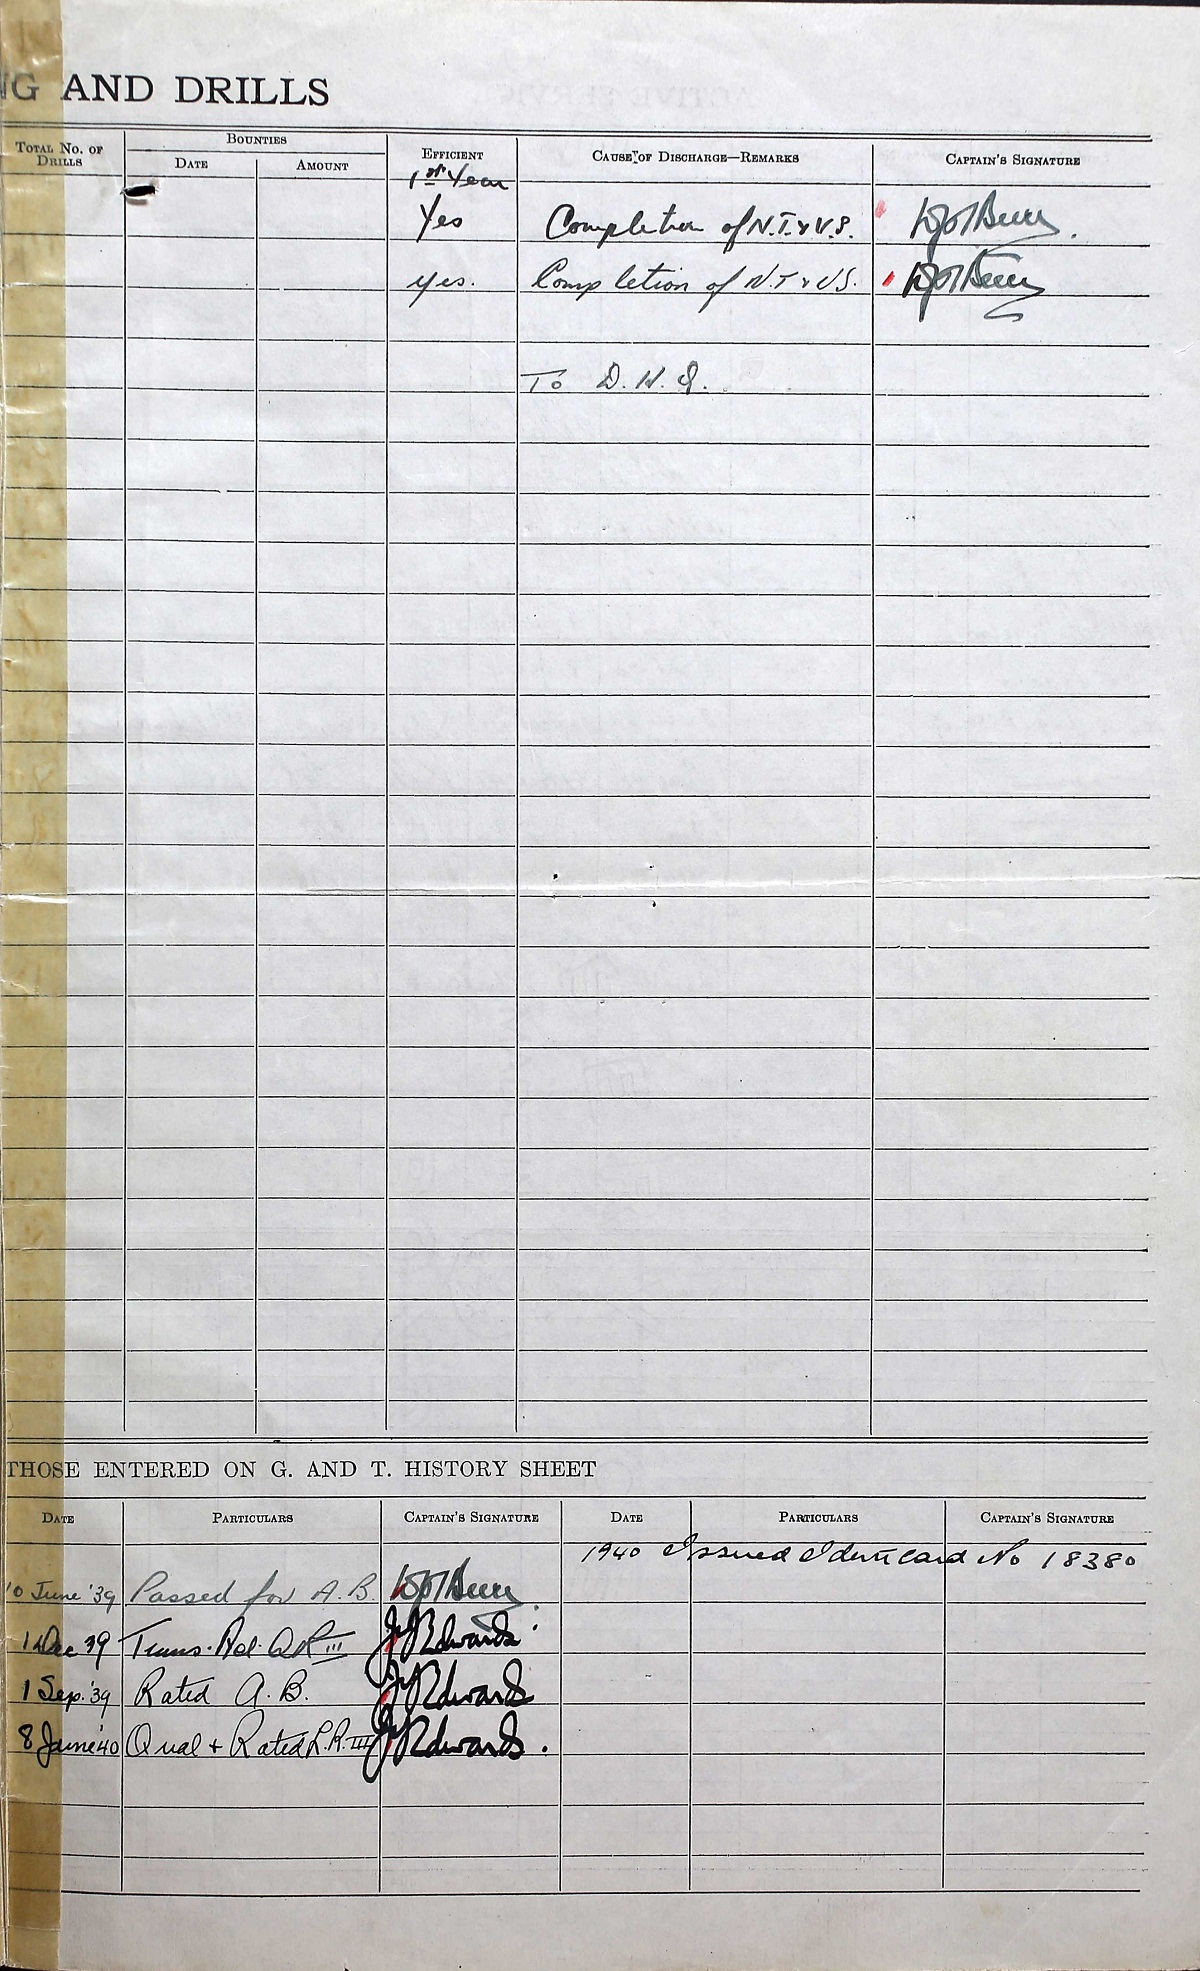 NG AND DRILLS
TOTAL NO. OF DRILLS BOUNTIES DATE AMOUNT EFFICIENT CAUSE OF DISCHARGE—REMARKS CAPTAIN'S SIGNATURE
1st Year
Yes Completion of N.T. & V.S.
yes. Completion of N.T & V.S.
To D.N.I.
THOSE ENTERED ON G. AND T. HISTORY SHEET
DATE PARTICULARS CAPTAIN'S SIGNATURE DATE PARTICULARS CAPTAIN'S SIGNATURE
1940 Issued Ident Card No 18380
10 June '39 Passed for A.B.
Dec 39 Edwards
1 Sep. '39 Rated A.B. Edwards
8 '40 Qual + Rated L.R. III Edwards.